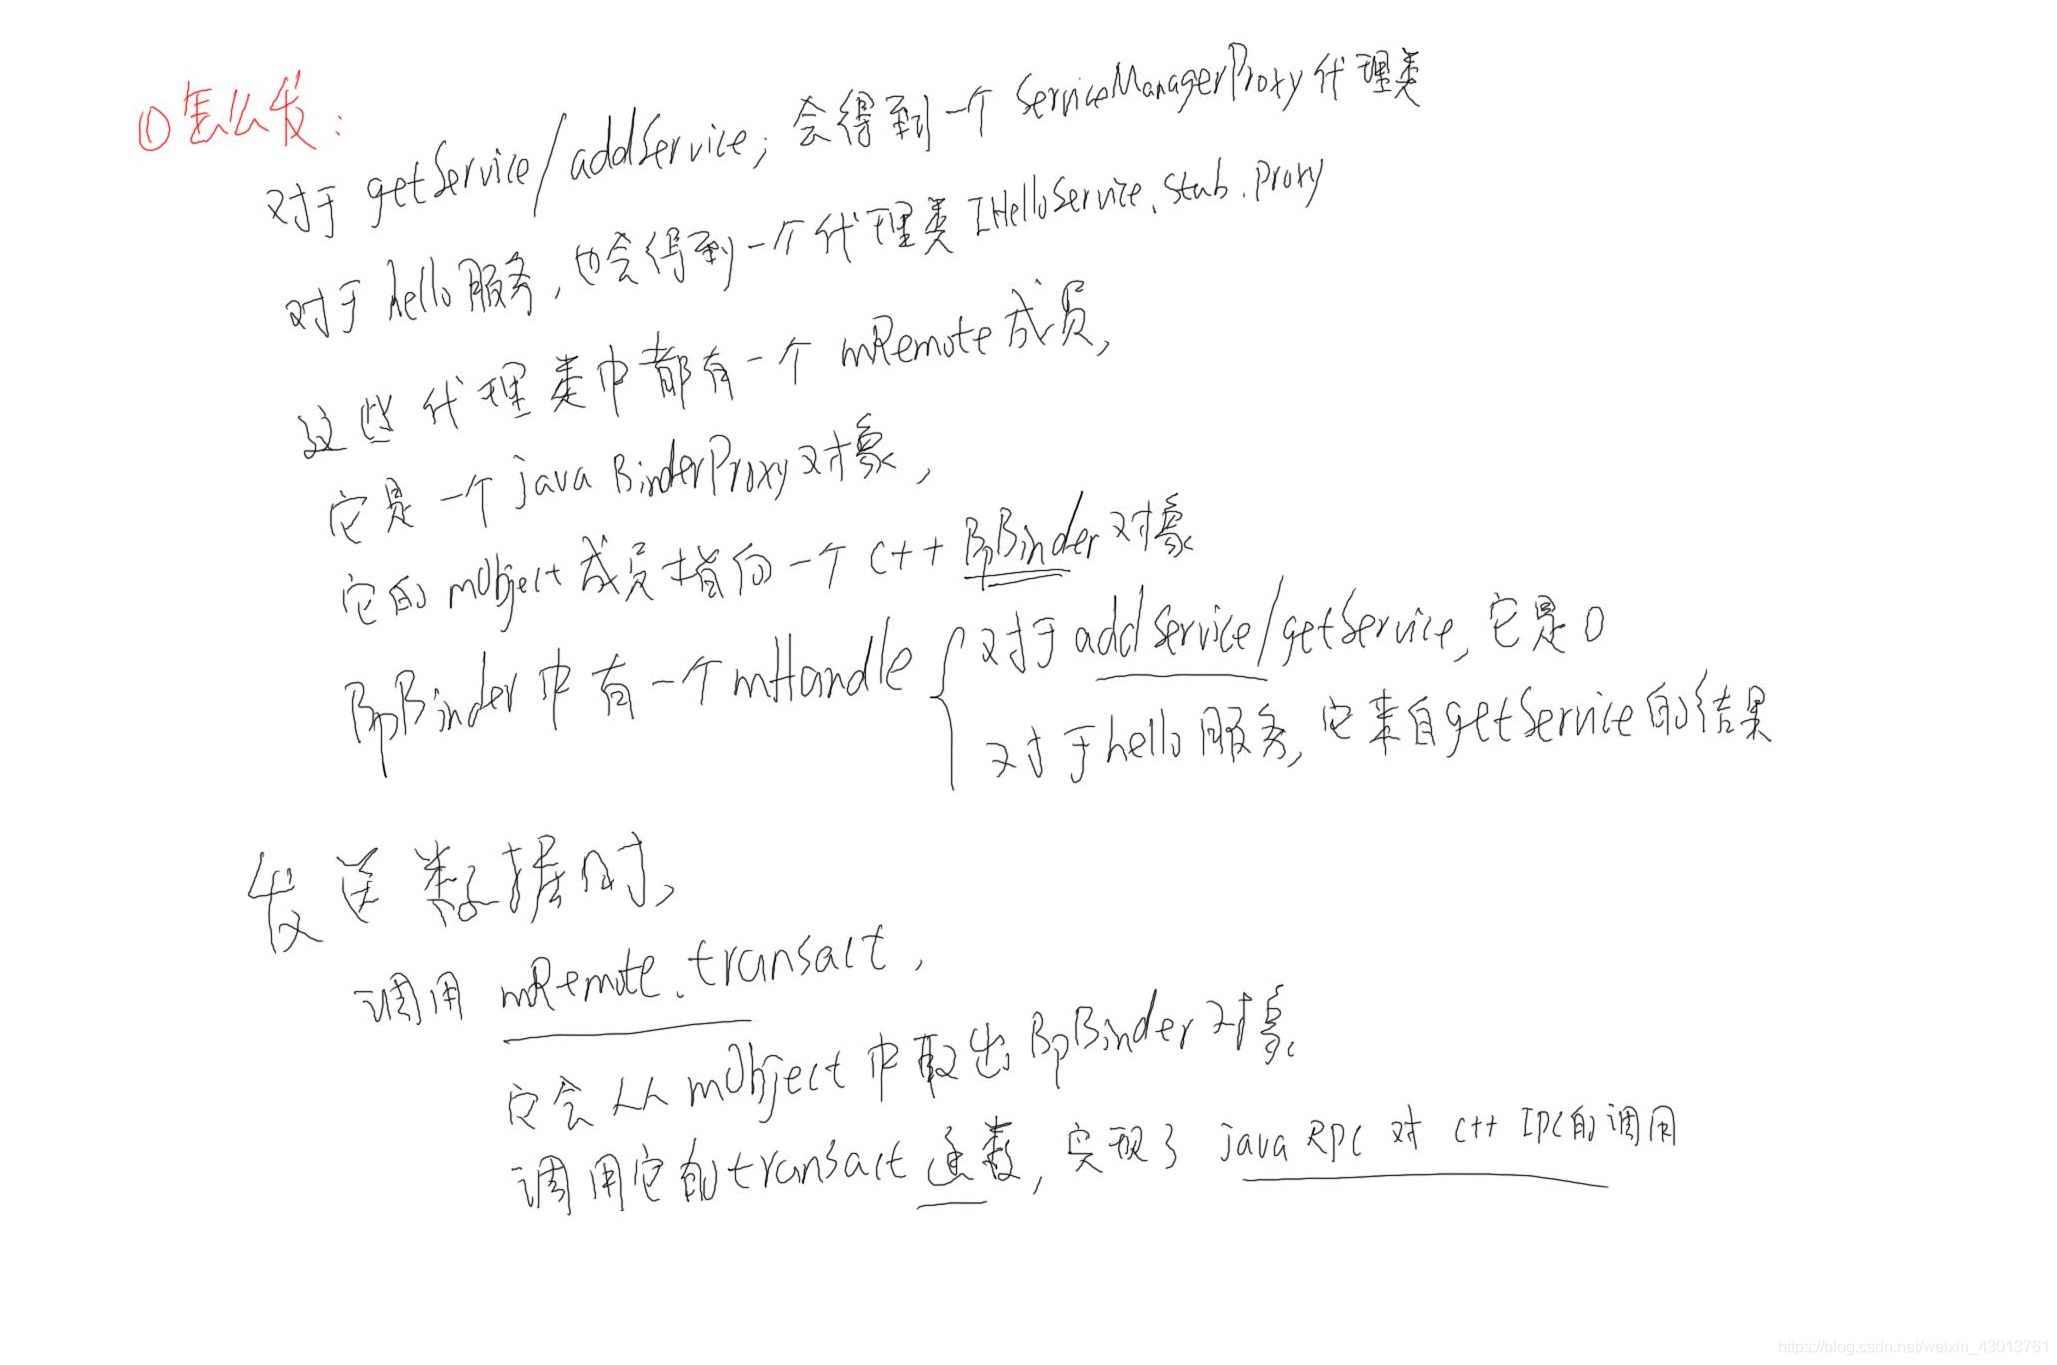 ①怎么发:
对于 getService/addService; 会得到一个 ServiceManagerProxy 代理类
对于 hello 服务, 也会得到一个代理类 IHelloService.Stub.Proxy
这些代理类中都有一个 mRemote 成员,
它是一个 java BinderProxy 对象,
它的 mObject 成员指向一个 C++ BpBinder 对象
BpBinder 中有一个 mHandle
对于 addService/getService, 它是 0
对于 hello 服务, 它来自 getService 的结果
发送数据时,
调用 mRemote.transact,
它会从 mObject 中取出 BpBinder 对象
调用它的 transact 函数, 实现了 java RPC 对 C++ IPC 的调用
https://blog.csdn.net/weixin_43013761